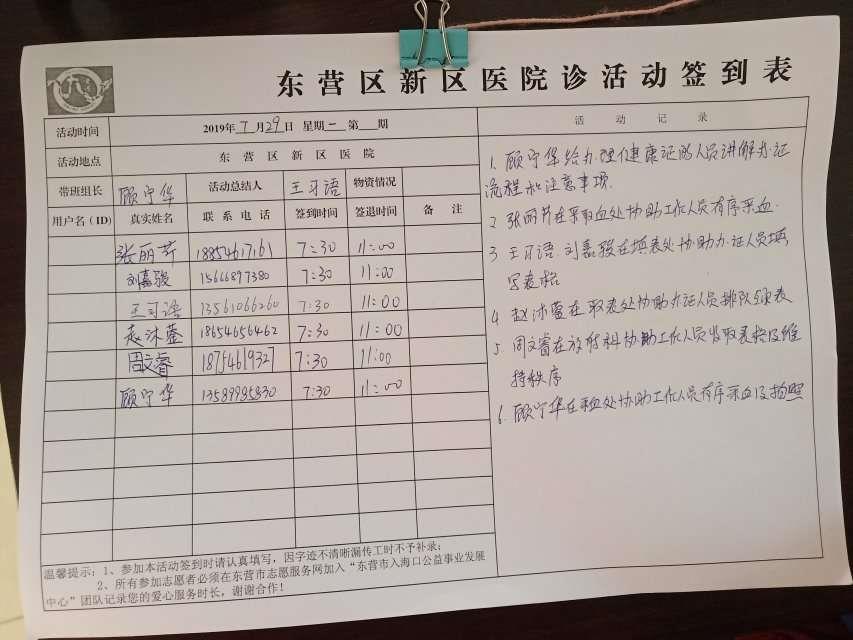 东营区新区医院诊活动签到表
活动时间 2019年7月29日 星期一 第___期 活动记录
活动地点 东营区新区医院
带班组长 顾宁华 活动总结人 王习语 物资情况
用户名(ID) 真实姓名 联系电话 签到时间 签退时间 备注
张丽芹 18854617161 7:30 11:00
刘嘉骏 15666897380 7:30 11:00
王习语 13561066260 7:30 11:00
赵沐蓥 18654656462 7:30 11:00
周文睿 18754619327 7:30 11:00
顾宁华 13589985830 7:30 11:00
1. 顾宁华给办理健康证的人员讲解办证
流程和注意事项.
2 张丽芹在采取血处协助工作人员有序采血.
3 王习语.刘嘉骏在填表处协助办证人员填
写表格
4 赵沐蓥在取表处协助办证人员排队领表
5 周文睿在放射科协助工作人员收取表格及维
持秩序
6. 顾宁华在采血处协助工作人员有序采血及拍照
温馨提示:1、参加本活动签到时请认真填写,因字迹不清晰漏传工时不予补录;
2、所有参加志愿者必须在东营市志愿服务网加入“东营市入海口公益事业发展
中心”团队记录您的爱心服务时长,谢谢合作!